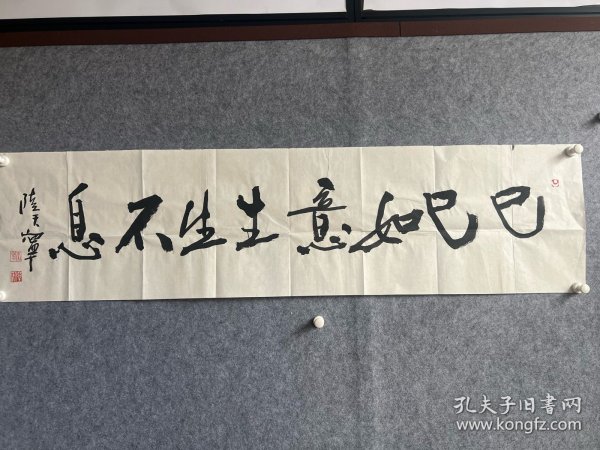 巳巳如意生生不息
陸天寧
孔夫子旧书网
www.kongfz.com